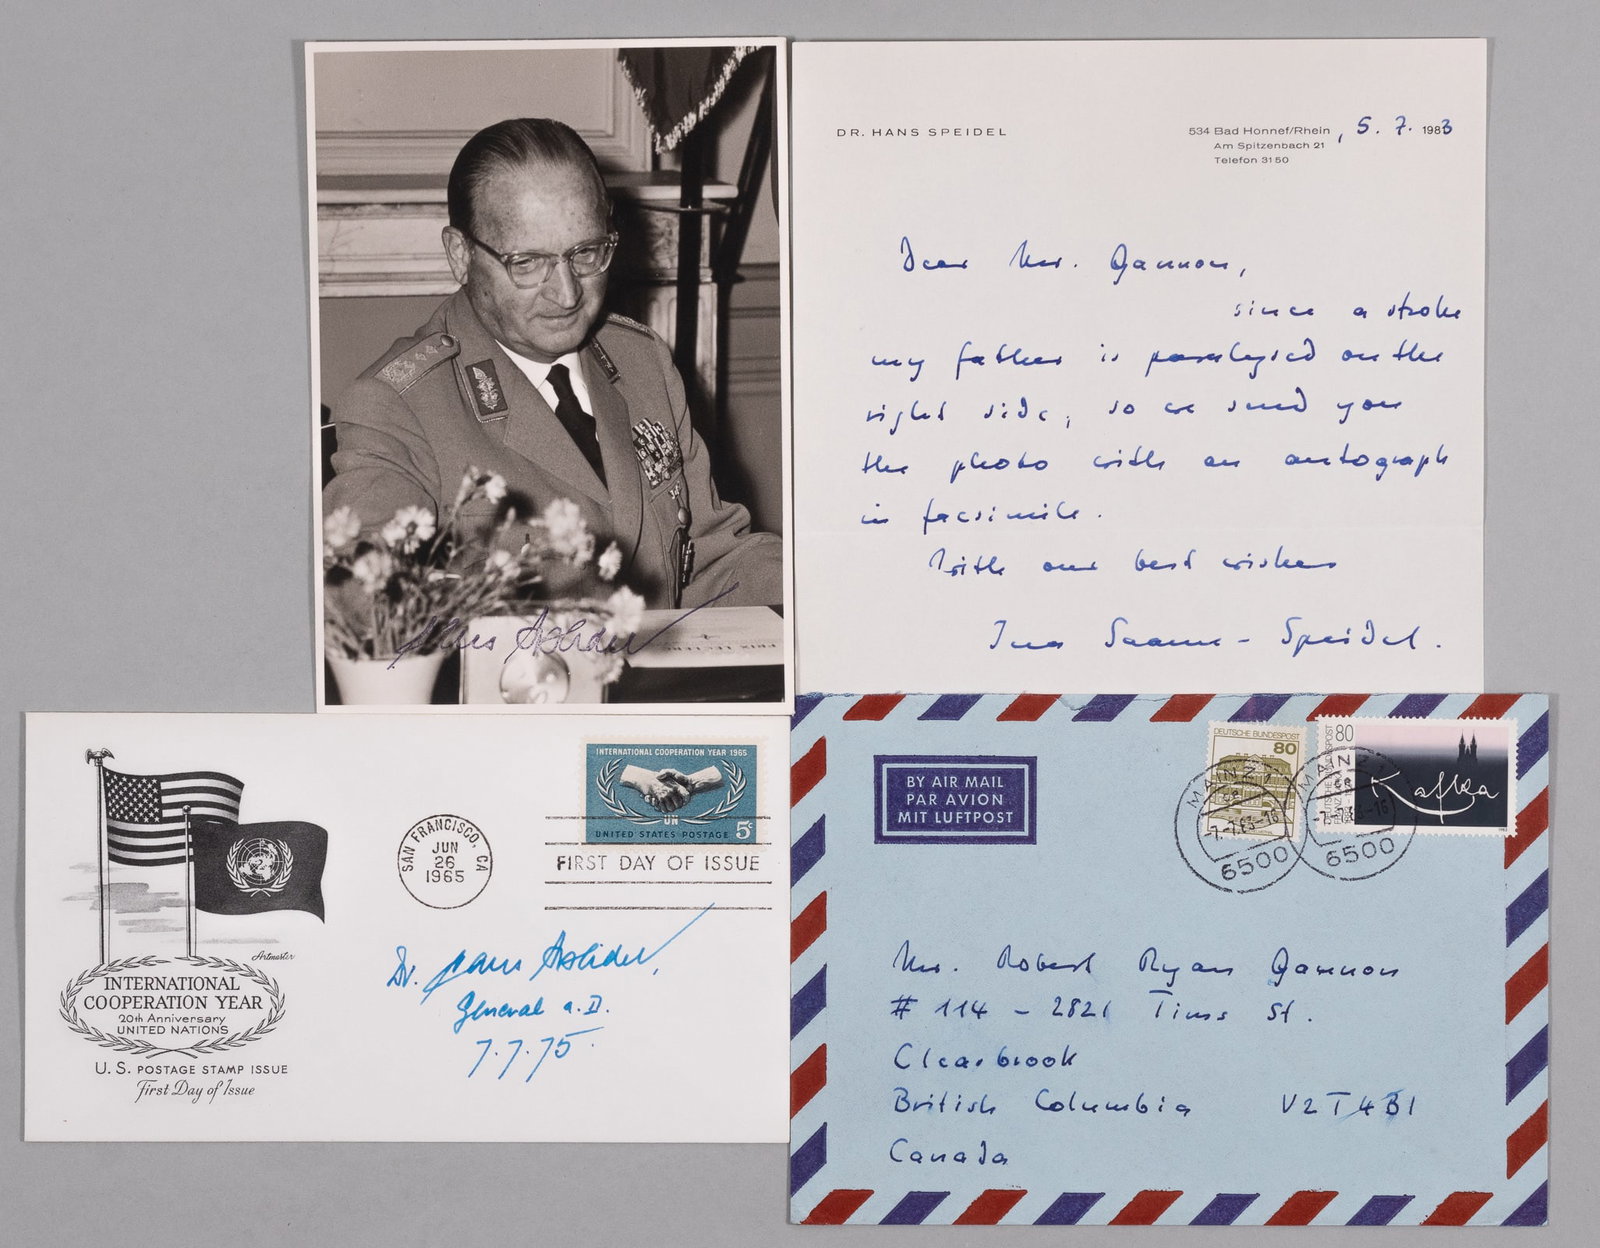 Hans Speidel
DR. HANS SPEIDEL
534 Bad Honnef/Rhein, 5. 7. 1983
Am Spitzenbach 21
Telefon 31 50
Dear Mr. Gannon,
since a stroke
my father is paralysed on the
right side, so we send you
the photo with an autograph
in facsimile.
With our best wishes
Ina Saame-Speidel.
INTERNATIONAL COOPERATION YEAR 1965
UN
UNITED STATES POSTAGE 5c
SAN FRANCISCO, CA
JUN
26
1965
FIRST DAY OF ISSUE
Artmaster
INTERNATIONAL
COOPERATION YEAR
20th Anniversary
UNITED NATIONS
U. S. POSTAGE STAMP ISSUE
First Day of Issue
Dr. Hans Speidel,
General a. D.
7.7.75.
BY AIR MAIL
PAR AVION
MIT LUFTPOST
DEUTSCHE BUNDESPOST
80
80
Kafka
MAINZ 1
-7.-7.83-16
6500
MAINZ 1
-7.-7.83-16
6500
Mr. Robert Ryan Gannon
# 114 - 2821 Tims St.
Clearbrook
British Columbia V2T 4B1
Canada